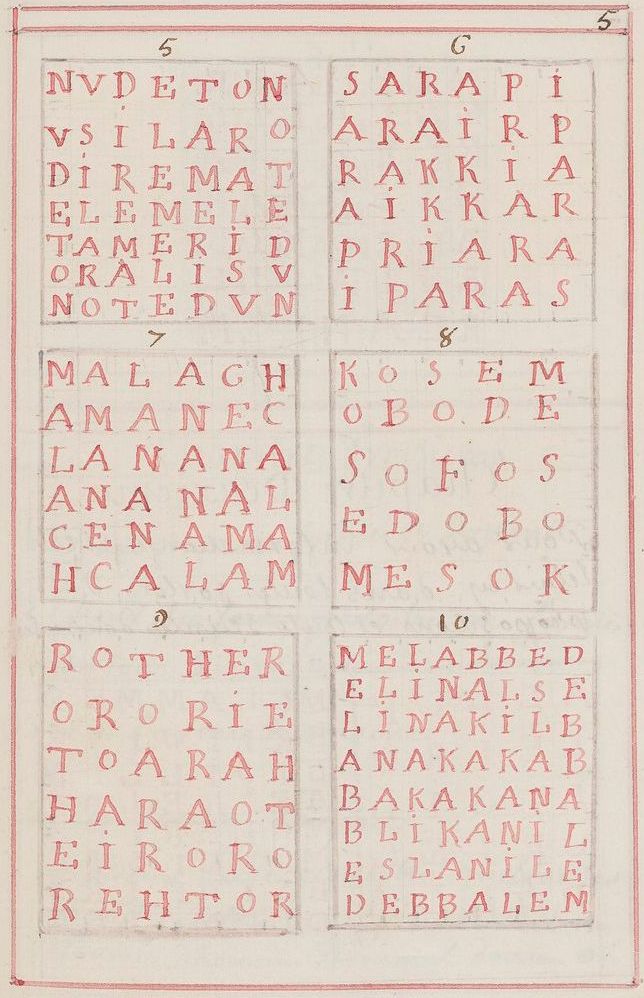 5
5
N V D E T O N
V S I L A R O
D I R E M A T
E L E M E L E
T A M E R I D
O R A L I S V
N O T E D V N
6
S A R A P I
A R A I R P
R A K K I A
A I K K A R
P R I A R A
I P A R A S
7
M A L A C H
A M A N E C
L A N A N A
A N A N A L
C E N A M A
H C A L A M
8
K O S E M
O B O D E
S O F O S
E D O B O
M E S O K
9
R O T H E R
O R O R I E
T O A R A H
H A R A O T
E I R O R O
R E H T O R
10
M E L A B B E D
E L I N A L S E
L I N A K I L B
A N A K A K A B
B A K A K A N A
B L I K A N I L
E S L A N I L E
D E B B A L E M